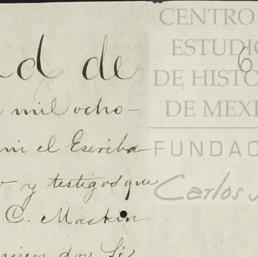 CENTRO
ESTUDIO
DE HISTO
DE MEXI
FUNDAC
Carlos
6
d de
mil ocho-
mi el Escriba
y testigos que
C. Mackin